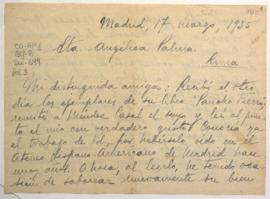 Madrid, 17 marzo, 1935
Sta Angélica Palma
Lima
Mi distinguida amiga: Recibí el otro
día los ejemplares de su libro "Pancho Fierro",
remití a Méndez Casal el suyo y leí al punto
el mío con verdadero gusto. Conocía ya
el trabajo de Vd, por habérselo oído en el
Ateneo Hispano-Americano de Madrid hace
unos años. Ahora, al leerlo, he tenido oca
sión de saborear nuevamente su bien